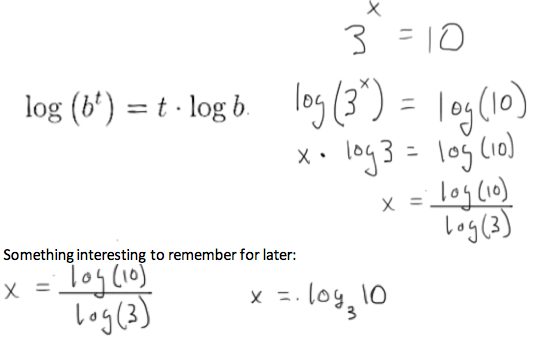 3^x = 10
log (b^t) = t · log b.
log(3^x) = log(10)
x · log 3 = log(10)
x = log(10) / log(3)
Something interesting to remember for later:
x = log(10) / log(3)
x =. log₃ 10